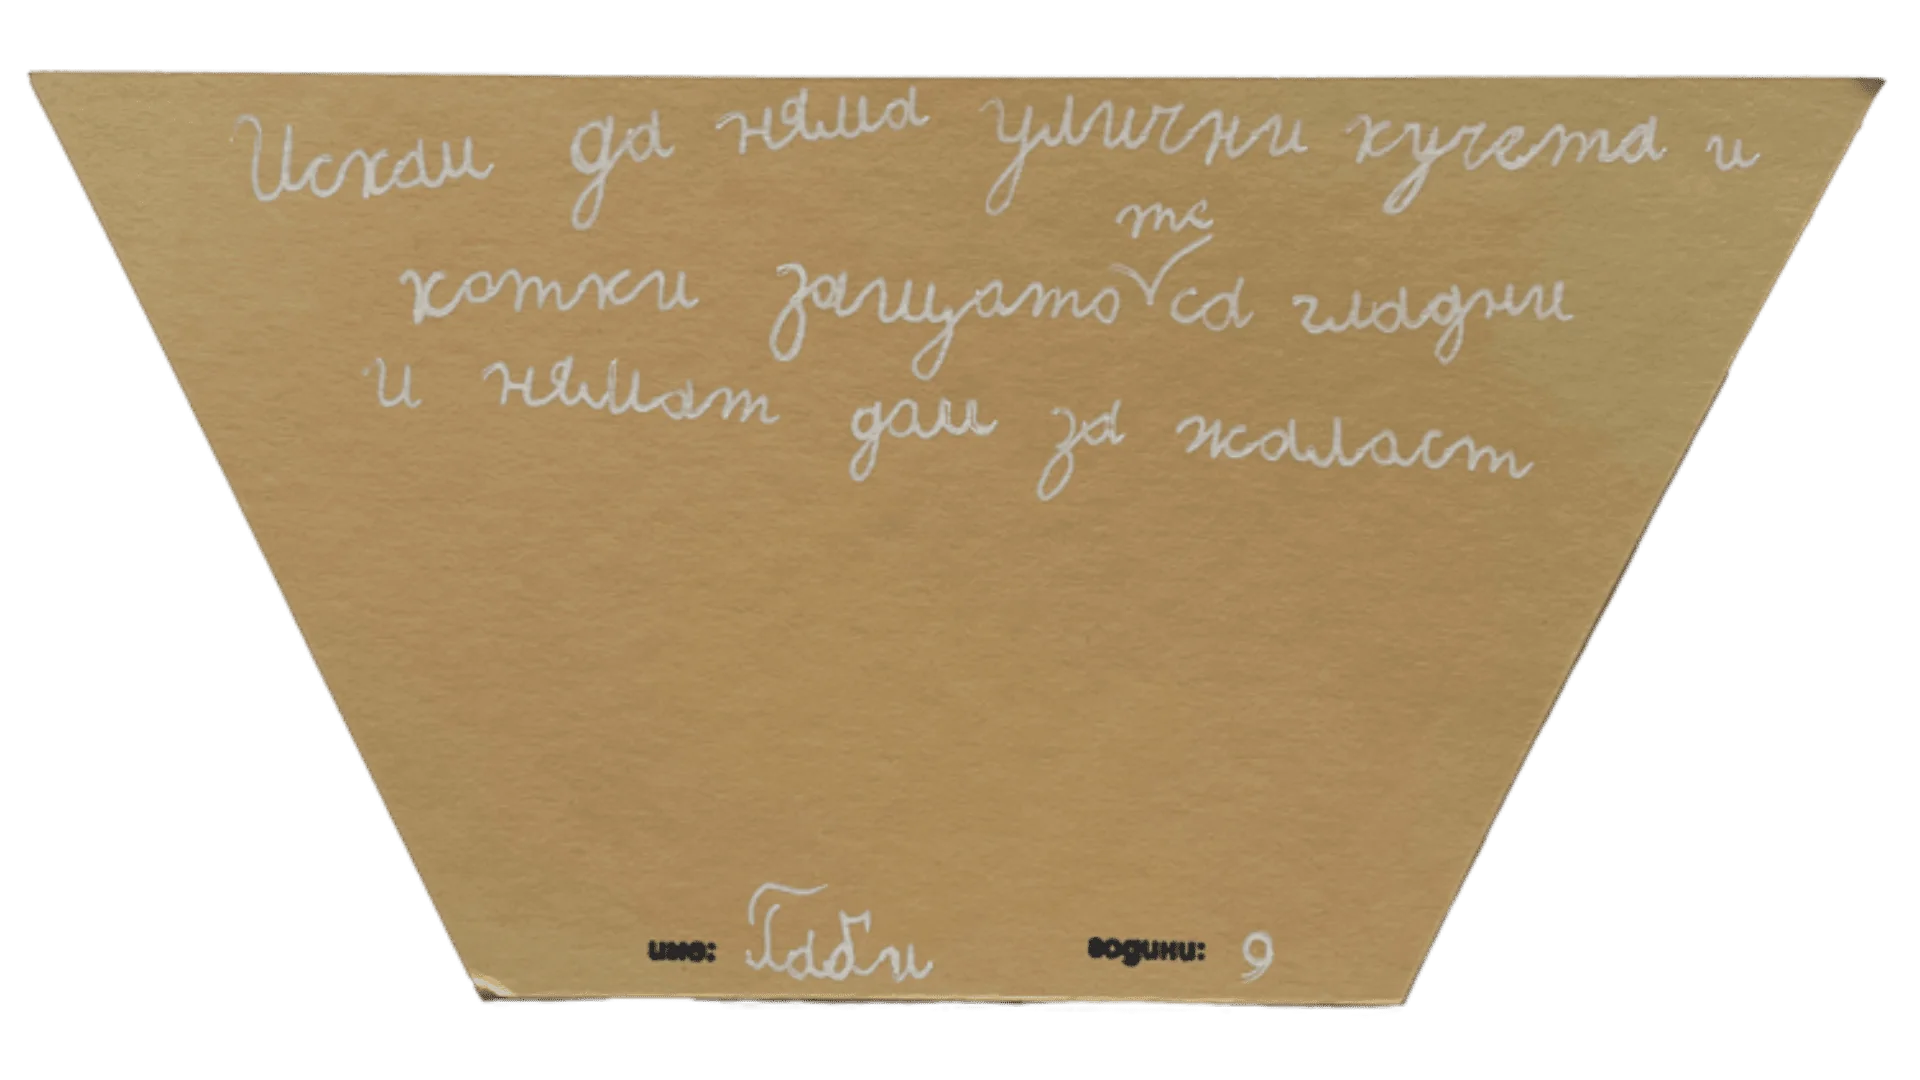 Искам да няма улични кучета и
котки защото те са гладни
и нямат дом за жалост
име: Габи години: 9